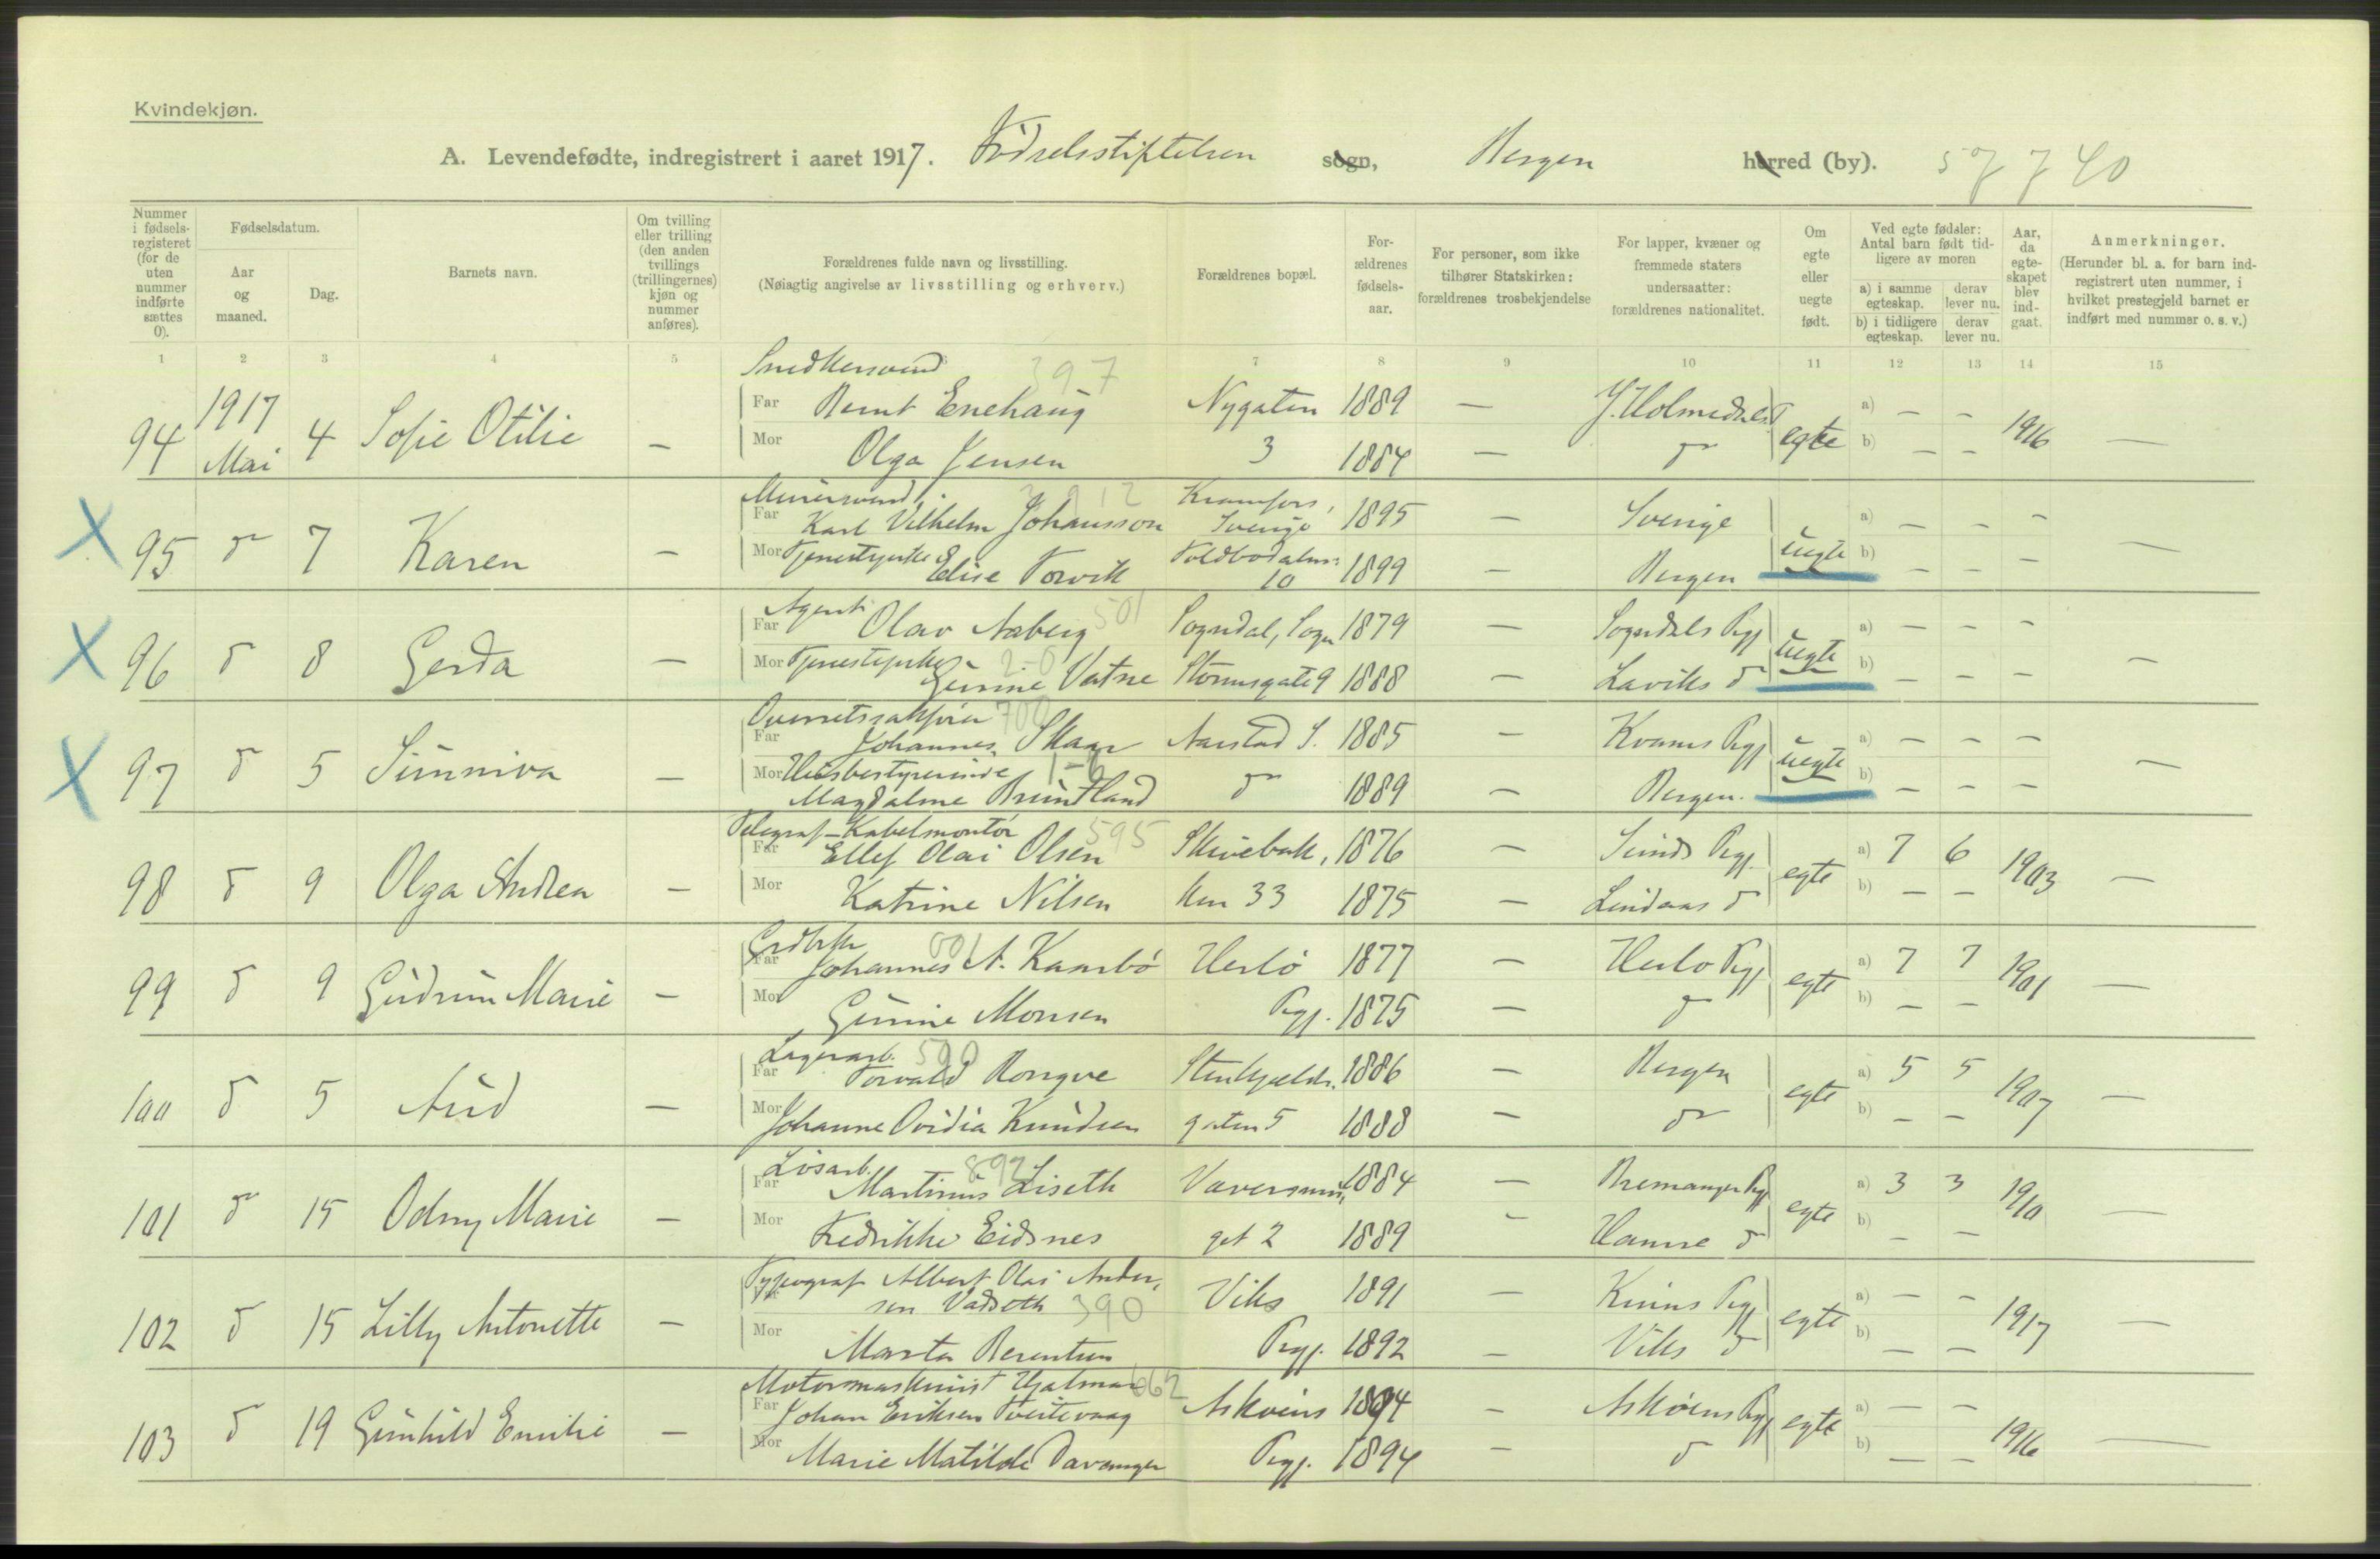 Kvindekjøn.
A. Levendefødte, indregistrert i aaret 1917. Födselsstiftelsen sogn, Bergen herred (by). 57740
Nummer i fødsels-registeret (for de uten nummer indførte sættes 0).
Fødselsdatum.
Aar og maaned.
Dag.
Barnets navn.
Om tvilling eller trilling (den anden tvillings (trillingernes) kjøn og nummer anføres).
Forældrenes fulde navn og livsstilling.
(Nøiagtig angivelse av livsstilling og erhverv.)
Forældrenes bopæl.
For-ældrenes fødsels-aar.
For personer, som ikke tilhører Statskirken: forældrenes trosbekjendelse
For lapper, kvæner og fremmede staters undersaatter: forældrenes nationalitet.
Om egte eller uegte født.
Ved egte fødsler: Antal barn født tid-ligere av moren
a) i samme egteskap.
derav lever nu.
b) i tidligere egteskap.
derav lever nu.
Aar, da egte-skapet blev ind-gaat.
Anmerkninger.
(Herunder bl. a. for barn ind-registrert uten nummer, i hvilket prestegjeld barnet er indført med nummer o. s. v.)
1 2 3 4 5 7 8 9 10 11 12 13 14 15
Snedkersvend 397
94 1917 Mai 4 Sofie Otilie — Far Bernt Enehaug Nygaten 1889 — egte a) — — 1916 —
Mor Olga Jensen 3 1884 — do b) — —
X 95 do 7 Karen — Far Karl Vilhelm Johansson Kramfors, Sverige 1895 — Sverige uegte a) — — — —
Mor Tjenestepike Elise Torvik 10 1899 — Bergen b) — — —
Agent 501
X 96 do 8 Gerda — Far Olav Aaberg Sogndal, Sogn 1879 — Sogndals Pgj uegte a) — — — —
Mor Tjenestepike 2-0 Gunne Vatne Stormsgate 9 1888 — Laviks do b) — — —
Overretssakfører 700
X 97 do 5 Sunniva — Far Johannes Skaar Aarstad S. 1885 — Kvams Pgj uegte a) — — — —
Mor Husbestyrerinde 1-6 Magdalene Bruntland do 1889 — Bergen. b) — — —
Telegraf-Kabelmontör 595
98 do 9 Olga Andrea — Far Ellef Olai Olsen Skivebak, 1876 — Sunds Pgj. egte a) 7 6 1903 —
Mor Katrine Nilsen ken 33 1875 — Lindaas do b) — —
001
99 do 9 Gudrun Marie — Far Johannes A. Kaarbö Herlö 1877 — Herlö Pgj egte a) 7 7 1901 —
Mor Gunne Monsen Pgj. 1875 — do b) — —
Lagerarb. 590
100 do 5 Aud — Far Torvald Rongve Stenkjelder- 1886 — Bergen egte a) 5 5 1907 —
Mor Johanne Ovidia Knudsen gaten 5 1888 — do b) — —
Lösarb. 892
101 do 15 Odny Marie — Far Martinus Liseth 1884 — Bremanger Pgj egte a) 3 3 1910 —
Mor Fredrikke Eidsnes get 2 1889 — Hamre do b) — —
Typograf Albert Olai Ander-
102 do 15 Lilly Antonette — sen Vadseth 390 Viks 1891 — Kinns Pgj egte a) — — 1917 —
Mor Marta Berentsen Pgj. 1892 — Viks do b) — —
Motormaskinist Hjalmar 662
103 do 19 Gunhild Emilie — Far Johan Eriksen Tveitevaag Askøens 1894 — Askøens Pgj egte a) — — 1916 —
Mor Marie Matilde Davanger Pgj. 1894 — do b) — —